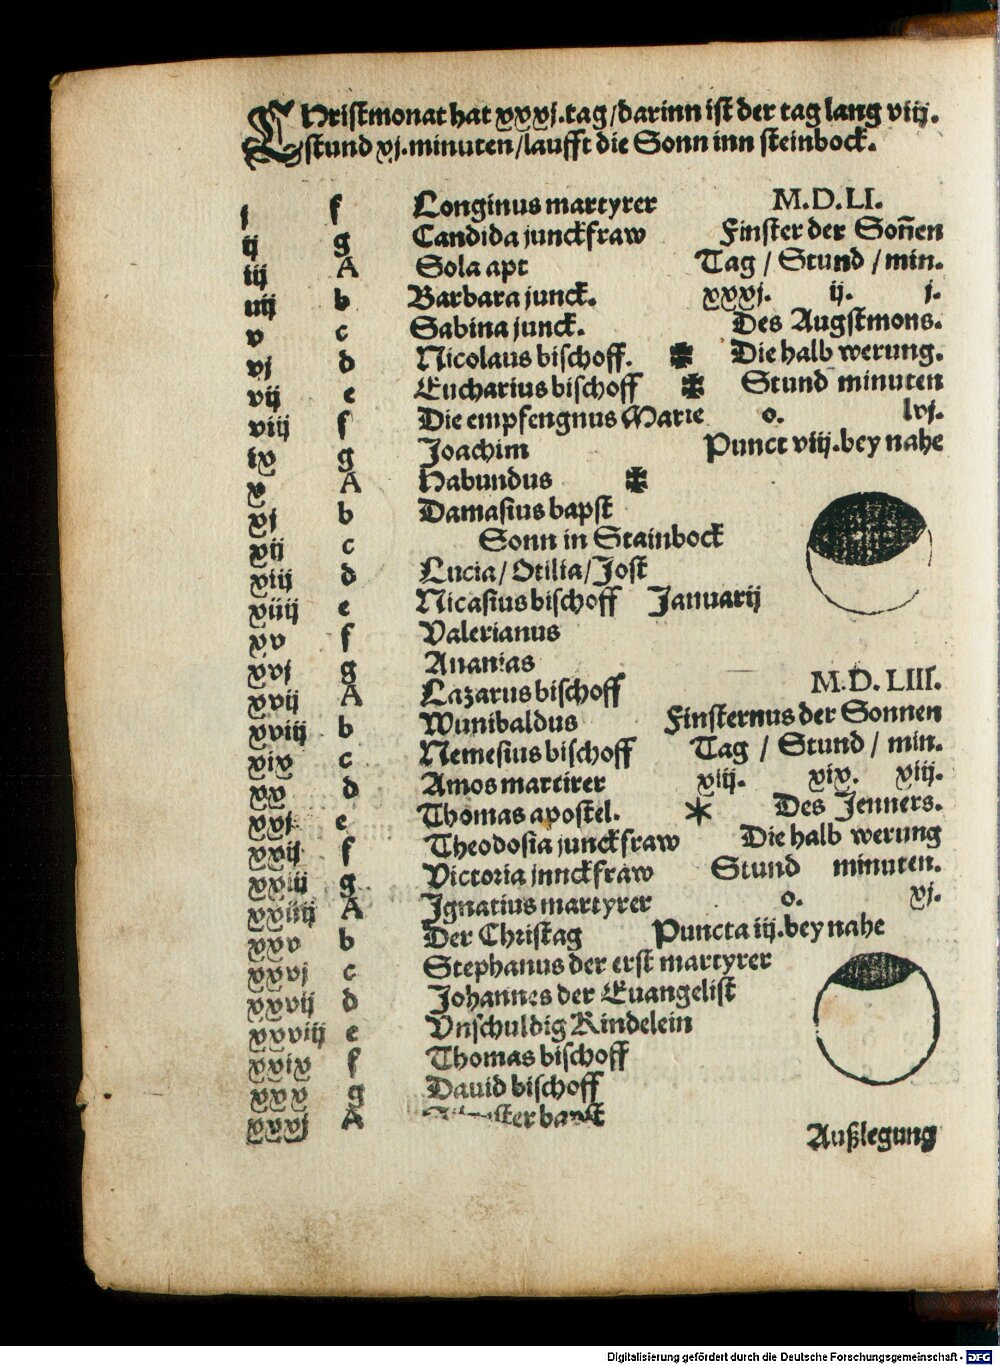 Christmonat hat xxxj.tag/darinn ist der tag lang viij.
stund xj.minuten/laufft die Sonn inn steinbock.
j f Longinus martyrer
ij g Candida junckfraw
iij A Sola apt
iiij b Barbara junck.
v c Sabina junck.
vj d Nicolaus bischoff. ✠
vij e Eucharius bischoff ✠
viij f Die empfengnus Marie
ix g Joachim
x A Habundus ✠
xj b Damasius bapst
xij c Sonn in Stainbock
xiij d Lucia/Otilia/Jost
xiiij e Nicasius bischoff Januarij
xv f Valerianus
xvj g Ananias
xvij A Lazarus bischoff
xviij b Wunibaldus
xix c Nemesius bischoff
xx d Amos martirer
xxj e Thomas apostel. *
xxij f Theodosia junckfraw
xxiij g Victoria jnnckfraw
xxiiij A Ignatius martyrer
xxv b Der Christag
xxvj c Stephanus der erst martyrer
xxvij d Johannes der Euangelist
xxviij e Vnschuldig Kindelein
xxix f Thomas bischoff
xxx g Dauid bischoff
xxxj A bapst
M.D.LI.
Finster der Soñen
Tag / Stund / min.
xxxj. ij. j.
Des Augstmons.
Die halb werung.
Stund minuten
o. lvj.
Punct viij.bey nahe
M.D.LIII.
Finsternus der Sonnen
Tag / Stund / min.
xiij. xix. viij.
Des Jenners.
Die halb werung
Stund minuten.
o. xj.
Puncta iij.bey nahe
Außlegung
Digitalisierung gefördert durch die Deutsche Forschungsgemeinschaft - DFG